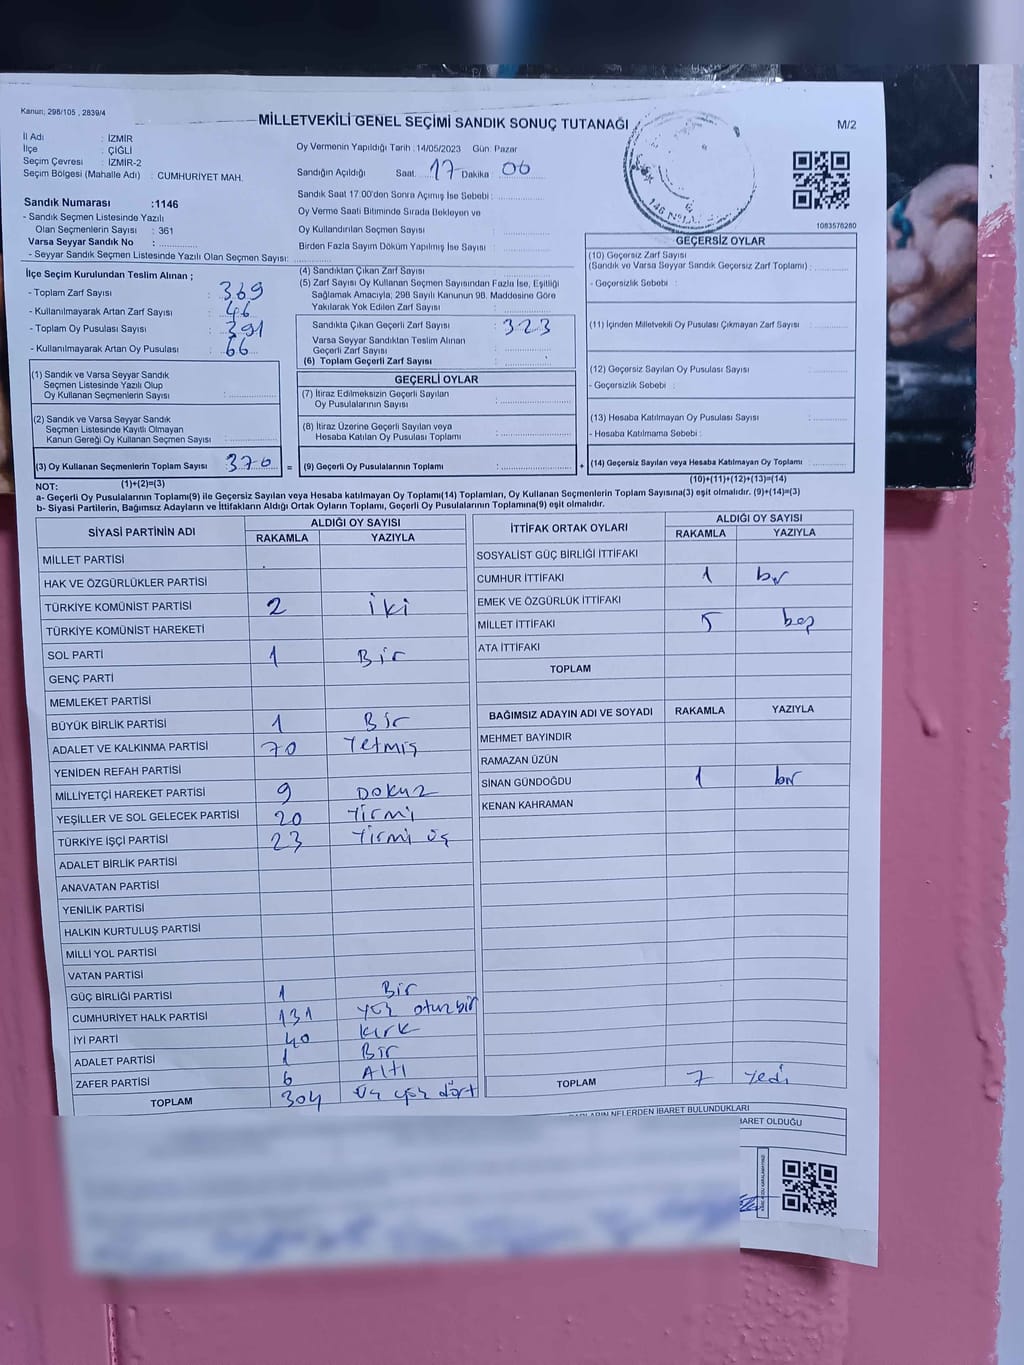 Kanun: 298/105 , 2839/4
MİLLETVEKİLİ GENEL SEÇİMİ SANDIK SONUÇ TUTANAĞI
M/2
İl Adı : İZMİR
İlçe : ÇİĞLİ
Seçim Çevresi : İZMİR-2
Seçim Bölgesi (Mahalle Adı) : CUMHURİYET MAH.
Oy Vermenin Yapıldığı Tarih :14/05/2023 Gün: Pazar
Sandığın Açıldığı Saat 17 Dakika 06
Sandık Saat 17:00'den Sonra Açımış İse Sebebi :
Oy Verme Saati Bitiminde Sırada Bekleyen ve
Oy Kullandırılan Seçmen Sayısı :
Birden Fazla Sayım Döküm Yapılmış İse Sayısı :
1083576280
Sandık Numarası :1146
- Sandık Seçmen Listesinde Yazılı
Olan Seçmenlerin Sayısı : 361
Varsa Seyyar Sandık No :
- Seyyar Sandık Seçmen Listesinde Yazılı Olan Seçmen Sayısı:
İlçe Seçim Kurulundan Teslim Alınan ;
- Toplam Zarf Sayısı : 369
- Kullanılmayarak Artan Zarf Sayısı : 46
- Toplam Oy Pusulası Sayısı : 391
- Kullanılmayarak Artan Oy Pusulası : 66
(1) Sandık ve Varsa Seyyar Sandık
Seçmen Listesinde Yazılı Olup
Oy Kullanan Seçmenlerin Sayısı :
(2) Sandık ve Varsa Seyyar Sandık
Seçmen Listesinde Kayıtlı Olmayan
Kanun Gereği Oy Kullanan Seçmen Sayısı :
(3) Oy Kullanan Seçmenlerin Toplam Sayısı : 370 =
(1)+(2)=(3)
(4) Sandıktan Çıkan Zarf Sayısı
(5) Zarf Sayısı Oy Kullanan Seçmen Sayısından Fazla İse, Eşitliği
Sağlamak Amacıyla, 298 Sayılı Kanunun 98. Maddesine Göre
Yakılarak Yok Edilen Zarf Sayısı :
Sandıkta Çıkan Geçerli Zarf Sayısı : 323
Varsa Seyyar Sandıktan Teslim Alınan
Geçerli Zarf Sayısı
(6) Toplam Geçerli Zarf Sayısı :
GEÇERLİ OYLAR
(7) İtiraz Edilmeksizin Geçerli Sayılan
Oy Pusulalarının Sayısı :
(8) İtiraz Üzerine Geçerli Sayılan veya
Hesaba Katılan Oy Pusulası Toplamı :
(9) Geçerli Oy Pusulalarının Toplamı : +
GEÇERSİZ OYLAR
(10) Geçersiz Zarf Sayısı
(Sandık ve Varsa Seyyar Sandık Geçersiz Zarf Toplamı) :
- Geçersizlik Sebebi :
(11) İçinden Milletvekili Oy Pusulası Çıkmayan Zarf Sayısı :
(12) Geçersiz Sayılan Oy Pusulası Sayısı :
- Geçersizlik Sebebi :
(13) Hesaba Katılmayan Oy Pusulası Sayısı :
- Hesaba Katılmama Sebebi :
(14) Geçersiz Sayılan veya Hesaba Katılmayan Oy Toplamı :
(10)+(11)+(12)+(13)=(14)
NOT:
a- Geçerli Oy Pusulalarının Toplamı(9) ile Geçersiz Sayılan veya Hesaba katılmayan Oy Toplamı(14) Toplamları, Oy Kullanan Seçmenlerin Toplam Sayısına(3) eşit olmalıdır. (9)+(14)=(3)
b- Siyasi Partilerin, Bağımsız Adayların ve İttifakların Aldığı Ortak Oyların Toplamı, Geçerli Oy Pusulalarının Toplamına(9) eşit olmalıdır.
SİYASİ PARTİNİN ADI ALDIĞI OY SAYISI
RAKAMLA YAZIYLA
MİLLET PARTİSİ
HAK VE ÖZGÜRLÜKLER PARTİSİ
TÜRKİYE KOMÜNİST PARTİSİ 2 iki
TÜRKİYE KOMÜNİST HAREKETİ
SOL PARTİ 1 Bir
GENÇ PARTİ
MEMLEKET PARTİSİ
BÜYÜK BİRLİK PARTİSİ 1 Bir
ADALET VE KALKINMA PARTİSİ 70 Yetmiş
YENİDEN REFAH PARTİSİ
MİLLİYETÇİ HAREKET PARTİSİ 9 Dokuz
YEŞİLLER VE SOL GELECEK PARTİSİ 20 Yirmi
TÜRKİYE İŞÇİ PARTİSİ 23 Yirmi üç
ADALET BİRLİK PARTİSİ
ANAVATAN PARTİSİ
YENİLİK PARTİSİ
HALKIN KURTULUŞ PARTİSİ
MİLLİ YOL PARTİSİ
VATAN PARTİSİ
GÜÇ BİRLİĞİ PARTİSİ 1 Bir
CUMHURİYET HALK PARTİSİ 131 yüz otuz bir
İYİ PARTİ 40 Kırk
ADALET PARTİSİ 1 Bir
ZAFER PARTİSİ 6 Altı
TOPLAM 304 Üç yüz dört
İTTİFAK ORTAK OYLARI ALDIĞI OY SAYISI
RAKAMLA YAZIYLA
SOSYALİST GÜÇ BİRLİĞİ İTTİFAKI
CUMHUR İTTİFAKI 1 bir
EMEK VE ÖZGÜRLÜK İTTİFAKI
MİLLET İTTİFAKI 5 beş
ATA İTTİFAKI
TOPLAM
BAĞIMSIZ ADAYIN ADI VE SOYADI RAKAMLA YAZIYLA
MEHMET BAYINDIR
RAMAZAN ÜZÜN
SİNAN GÜNDOĞDU 1 bir
KENAN KAHRAMAN
TOPLAM 7 Yedi
NELERDEN İBARET BULUNDUKLARI
BARET OLDUĞU